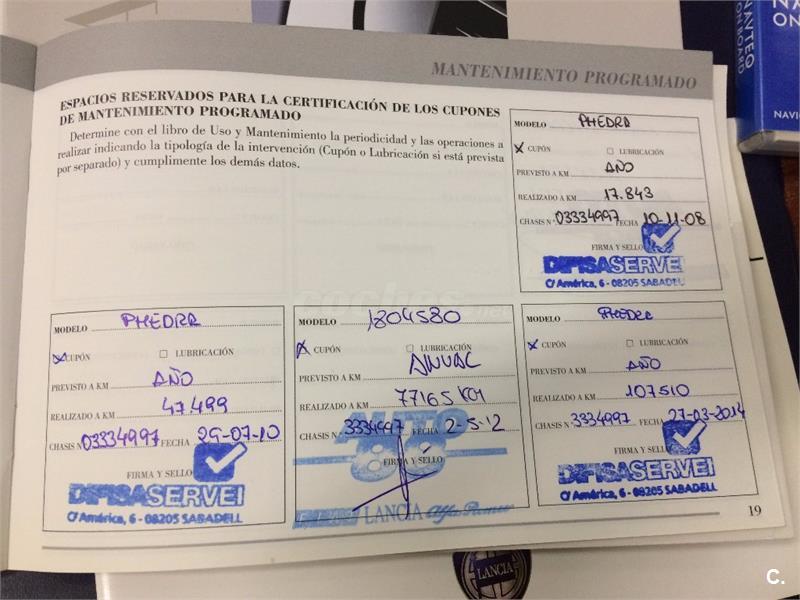 MANTENIMIENTO PROGRAMADO
ESPACIOS RESERVADOS PARA LA CERTIFICACIÓN DE LOS CUPONES
DE MANTENIMIENTO PROGRAMADO
Determine con el libro de Uso y Mantenimiento la periodicidad y las operaciones a
realizar indicando la tipología de la intervención (Cupón o Lubricación si está prevista
por separado) y cumplimente los demás datos.
MODELO PHEDRA
X CUPÓN LUBRICACIÓN
PREVISTO A KM AÑO
REALIZADO A KM 17.843
CHASIS N° 03334997 FECHA 10-11-08
FIRMA Y SELLO
DIFISASERVEI
C/ América, 6 - 08205 SABADELL
MODELO PHEDRA
X CUPÓN LUBRICACIÓN
PREVISTO A KM AÑO
REALIZADO A KM 47.499
CHASIS N° 03334997 FECHA 29-07-10
FIRMA Y SELLO
DIFISASERVEI
C/ América, 6 - 08205 SABADELL
MODELO 1804580
X CUPÓN LUBRICACIÓN
PREVISTO A KM ANUAL
REALIZADO A KM 77165 KM
CHASIS N° 3334997 FECHA 2-5-12
AUTO
FIRMA Y SELLO
LANCIA Alfa Romeo
MODELO PHEDRA
X CUPÓN LUBRICACIÓN
PREVISTO A KM AÑO
REALIZADO A KM 107510
CHASIS N° 3334997 FECHA 27-03-2014
FIRMA Y SELLO
DIFISASERVEI
C/ América, 6 - 08205 SABADELL
19
NAVTEQ
ON BOARD
LANCIA
coches.net
C.